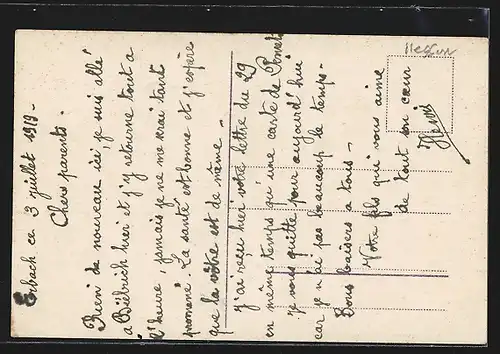 Erbach ce 3 juillet 1919-
Chers parents.
Rien de nouveau ici, je suis allé
a Biebrich hier et j'y retourne tout a
l'heure, jamais je ne me vrai tant
promené La santé est bonne et j'espère
que la vôtre est de même -
J'ai recu hier votre lettre du 29
en même temps qu'une carte de
je vous quitte pour aujourd'hui
car je n'ai pas beaucoup le temps-
Bons baisers a tous-
Votre fils qui vous aime
de tout son cœur
Henri